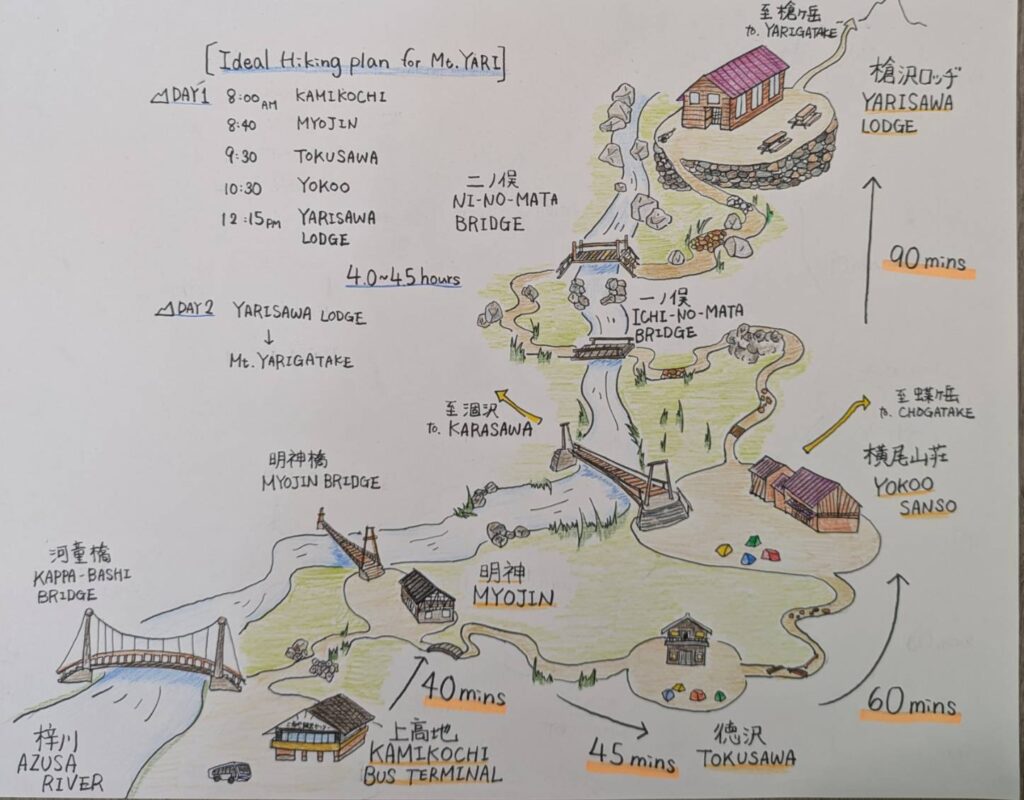 [Ideal Hiking plan for Mt. YARI]
DAY1 8:00AM KAMIKOCHI
8:40 MYOJIN
9:30 TOKUSAWA
10:30 YOKOO
12:15PM YARISAWA
LODGE
4.0~4.5 hours
DAY2 YARISAWA LODGE
↓
Mt. YARIGATAKE
至槍ヶ岳
to. YARIGATAKE
槍沢ロッヂ
YARISAWA
LODGE
二ノ俣
NI-NO-MATA
BRIDGE
90 mins
一ノ俣
ICHI-NO-MATA
BRIDGE
至涸沢
to. KARASAWA
至蝶ヶ岳
to. CHOGATAKE
横尾山荘
YOKOO
SANSO
明神橋
MYOJIN BRIDGE
河童橋
KAPPA-BASHI
BRIDGE
明神
MYOJIN
40 mins
60 mins
梓川
AZUSA
RIVER
上高地
KAMIKOCHI
BUS TERMINAL
45 mins
徳沢
TOKUSAWA